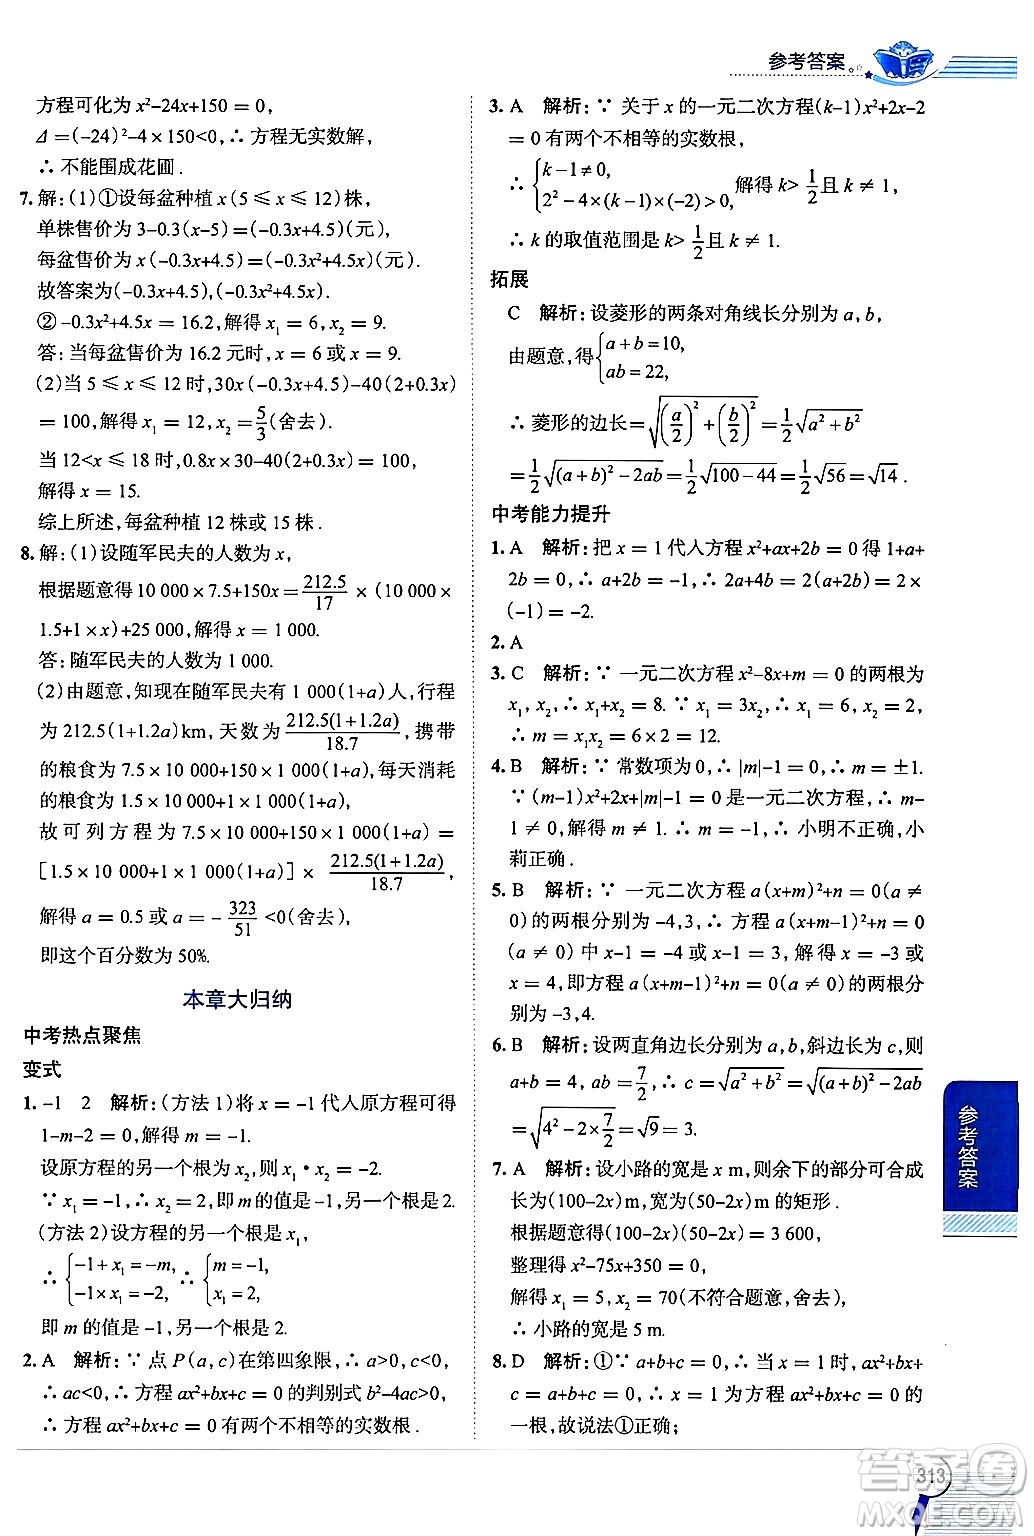 参考答案
方程可化为 x²-24x+150 = 0,
Δ = (-24)²-4×150<0,∴ 方程无实数解,
∴ 不能围成花圃.
7. 解:(1)①设每盆种植 x(5 ≤ x ≤ 12)株,
单株售价为 3-0.3(x-5)=(-0.3x+4.5)(元),
每盆售价为 x(-0.3x+4.5)=(-0.3x²+4.5x)(元).
故答案为(-0.3x+4.5),(-0.3x²+4.5x);
②-0.3x²+4.5x = 16.2,解得 x₁ = 6, x₂ = 9.
答:当每盆售价为 16.2 元时,x = 6 或 x = 9.
(2)当 5 ≤ x ≤ 12 时,30x(-0.3x+4.5)-40(2+0.3x)
= 100,解得 x₁ = 12, x₂ = 5/3 (舍去).
当 12<x ≤ 18 时,0.8x×30-40(2+0.3x) = 100,
解得 x = 15.
综上所述,每盆种植 12 株或 15 株.
8. 解:(1)设随军民夫的人数为 x,
根据题意得 10 000×7.5+150x = 212.5/17 ×(10 000×
1.5+1×x)+25 000,解得 x = 1 000.
答:随军民夫的人数为 1 000.
(2)由题意,知现在随军民夫有 1 000(1+a)人,行程
为 212.5(1+1.2a)km,天数为 212.5(1+1.2a)/18.7,携带
的粮食为 7.5×10 000+150×1 000(1+a),每天消耗
的粮食为 1.5×10 000+1×1 000(1+a),
故可列方程为 7.5×10 000+150×1 000(1+a) =
[1.5×10 000+1 000(1+a)] × 212.5(1+1.2a)/18.7,
解得 a = 0.5 或 a = -323/51 <0(舍去),
即这个百分数为 50%.
本章大归纳
中考热点聚焦
变式
1. -1 2 解析:(方法 1)将 x = -1 代入原方程可得
1-m-2 = 0,解得 m = -1.
设原方程的另一个根为 x₂,则 x₁•x₂ = -2.
∵ x₁ = -1,∴ x₂ = 2,即 m 的值是-1,另一个根是 2.
(方法 2)设方程的另一个根是 x₁,
∴ {-1+x₁ = -m, -1×x₁ = -2, ∴ {m = -1, x₁ = 2,
即 m 的值是-1,另一个根是 2.
2. A 解析:∵ 点 P(a,c)在第四象限,∴ a>0,c<0,
∴ ac<0,∴ 方程 ax²+bx+c = 0 的判别式 b²-4ac>0,
∴ 方程 ax²+bx+c = 0 有两个不相等的实数根.
3. A 解析:∵ 关于 x 的一元二次方程(k-1)x²+2x-2
= 0 有两个不相等的实数根,
∴ {k-1≠0, 2²-4×(k-1)×(-2)>0, 解得 k> 1/2 且 k ≠ 1.
∴ k 的取值范围是 k> 1/2 且 k ≠ 1.
拓展
C 解析:设菱形的两条对角线长分别为 a,b,
由题意,得{a+b=10, ab=22,
∴ 菱形的边长 = √((a/2)²+(b/2)²) = 1/2 √(a²+b²)
= 1/2 √((a+b)²-2ab) = 1/2 √(100-44) = 1/2 √56 = √14.
中考能力提升
1. A 解析:把 x = 1 代入方程 x²+ax+2b = 0 得 1+a+
2b = 0,∴ a+2b = -1,∴ 2a+4b = 2(a+2b) = 2×
(-1) = -2.
2. A
3. C 解析:∵ 一元二次方程 x²-8x+m = 0 的两根为
x₁, x₂,∴ x₁+x₂ = 8. ∵ x₁ = 3x₂,∴ x₁ = 6, x₂ = 2,
∴ m = x₁x₂ = 6×2 = 12.
4. B 解析:∵ 常数项为 0,∴ |m|-1 = 0,∴ m = ±1.
∵ (m-1)x²+2x+|m|-1 = 0 是一元二次方程,∴ m-
1≠0,解得 m ≠ 1. ∴ m = -1,∴ 小明不正确,小
莉正确.
5. B 解析:∵ 一元二次方程 a(x+m)²+n = 0(a ≠
0)的两根分别为 -4,3,∴ 方程 a(x+m-1)²+n = 0
(a ≠ 0)中 x-1 = -4 或 x-1 = 3,解得 x = -3 或
x = 4,即方程 a(x+m-1)²+n = 0(a ≠ 0)的两根分
别为 -3,4.
6. B 解析:设两直角边长分别为 a,b,斜边长为 c,则
a+b = 4, ab = 7/2,∴ c = √(a²+b²) = √((a+b)²-2ab)
= √(4²-2×7/2) = √9 = 3.
7. A 解析:设小路的宽是 x m,则余下的部分可合成
长为(100-2x)m,宽为(50-2x)m 的矩形.
根据题意得(100-2x)(50-2x) = 3 600,
整理得 x²-75x+350 = 0,
解得 x₁ = 5, x₂ = 70(不符合题意,舍去),
∴ 小路的宽是 5 m.
8. D 解析:①∵ a+b+c = 0,∴ 当 x = 1 时,ax²+bx+
c = a+b+c = 0,∴ x = 1 为方程 ax²+bx+c = 0 的
一根,故说法①正确;
参考答案
313
答案圈
MXQE.COM